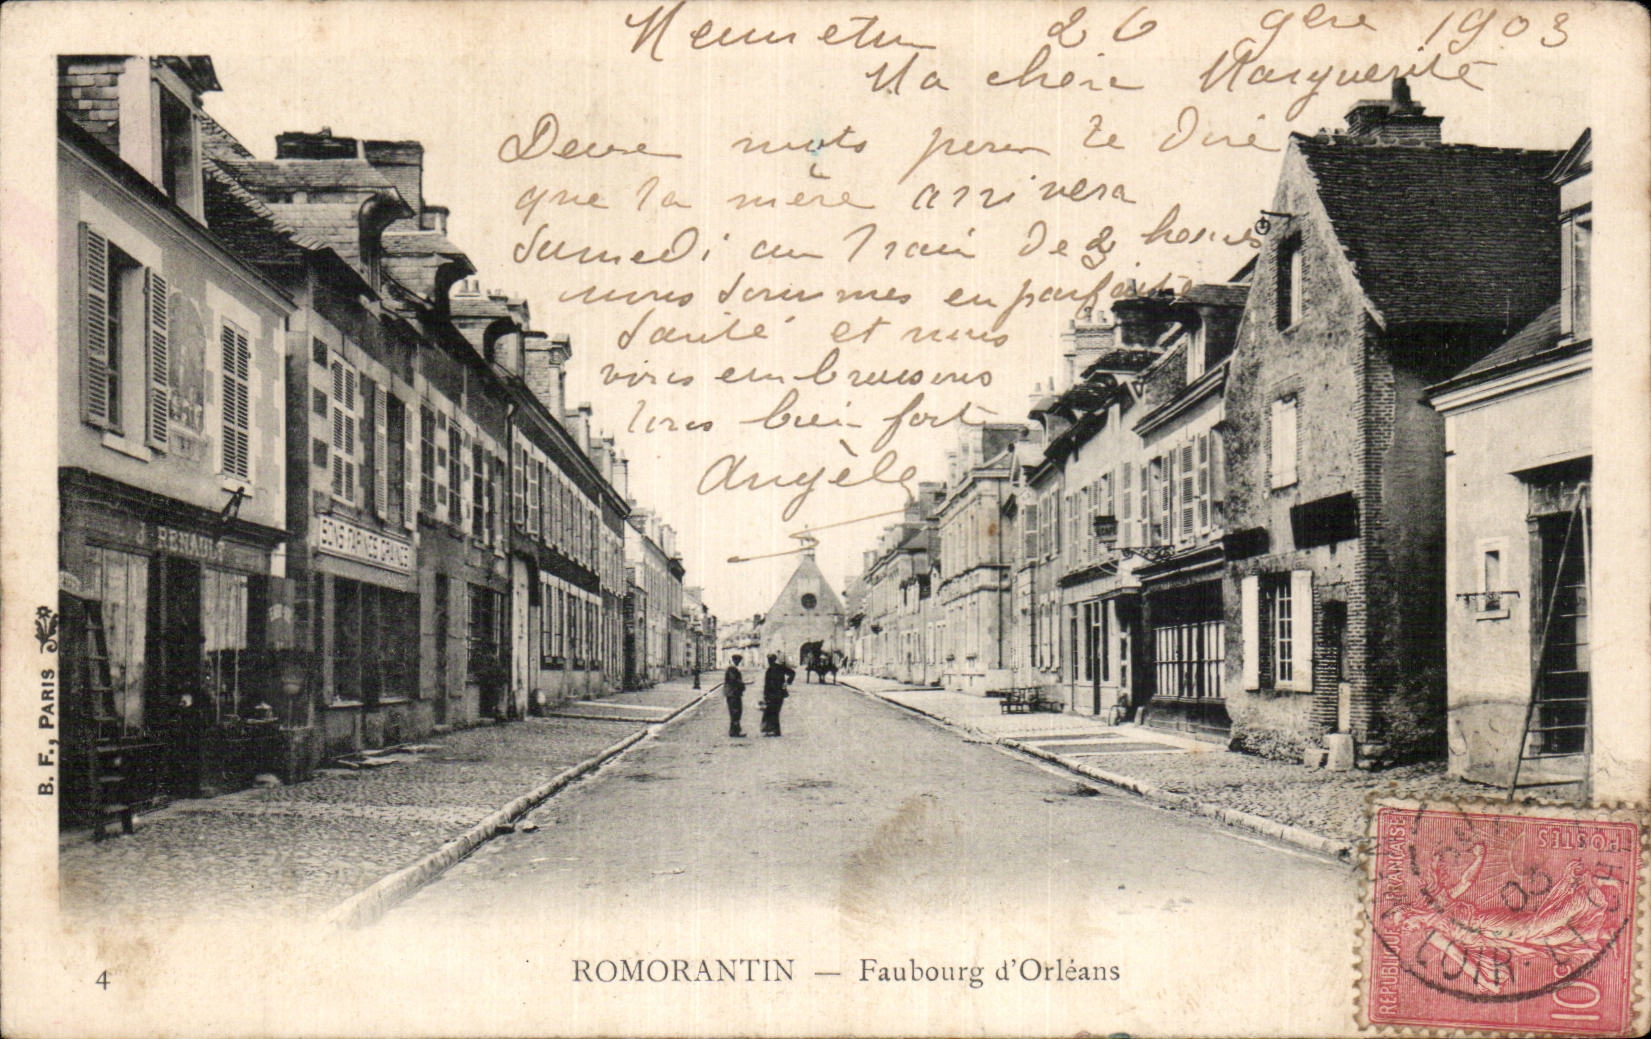 26 9bre 1903
Ma chère Marguerite
Deux mots pour te dire
que ta mère arrivera
Samedi au train de 2 heures
nous sommes en parfaite
Santé et nous
vous embrassons
tous bien fort
Angèle
J. RENAULT
SONS FARINES GRAINES
B. F., PARIS
4
ROMORANTIN — Faubourg d'Orléans
REPUBLIQUE FRANÇAISE
POSTES
10c
03
LOIR-ET-CH